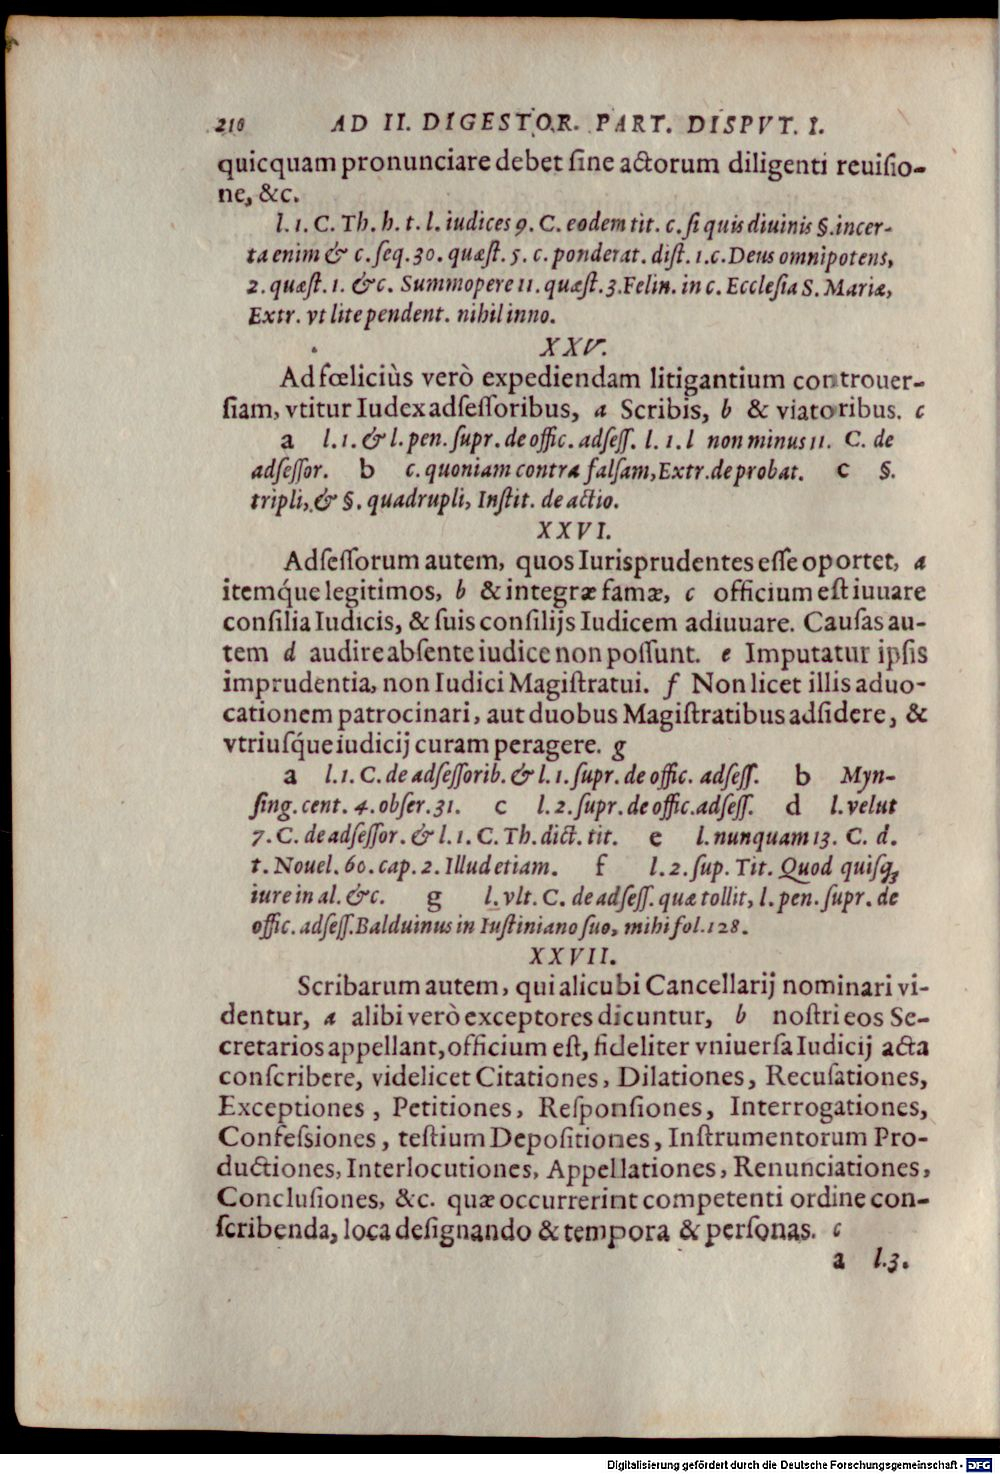 210 AD II. DIGESTOR. PART. DISPVT. I.
quicquam pronunciare debet ſine actorum diligenti reuiſio-
ne, &c.
l. 1. C. Th. h. t. l. iudices 9. C. eodem tit. c. ſi quis diuinis §. incer-
ta enim & c. ſeq. 30. quæſt. 5. c. ponderat. diſt. 1. c. Deus omnipotens,
2. quæſt. 1. &c. Summopere 11. quæſt. 3. Felin. in c. Eccleſia S. Mariæ,
Extr. vt lite pendent. nihil inno.
XXV.
Ad fœliciùs verò expediendam litigantium controuer-
ſiam, vtitur Iudex adſeſſoribus, a Scribis, b & viatoribus. c
a l. 1. & l. pen. ſupr. de offic. adſeſſ. l. 1. l non minus 11. C. de
adſeſſor. b c. quoniam contra falſam, Extr. de probat. c §.
tripli, & §. quadrupli, Inſtit. de actio.
XXVI.
Adſeſſorum autem, quos Iurisprudentes eſſe oportet, a
itemq́ue legitimos, b & integræ famæ, c officium eſt iuuare
conſilia Iudicis, & ſuis conſilijs Iudicem adiuuare. Cauſas au-
tem d audire abſente iudice non poſſunt. e Imputatur ipſis
imprudentia, non Iudici Magiſtratui. f Non licet illis aduo-
cationem patrocinari, aut duobus Magiſtratibus adſidere, &
vtriuſq́ue iudicij curam peragere. g
a l. 1. C. de adſeſſorib. & l. 1. ſupr. de offic. adſeſſ. b Myn-
ſing. cent. 4. obſer. 31. c l. 2. ſupr. de offic. adſeſſ. d l. velut
7. C. de adſeſſor. & l. 1. C. Th. dict. tit. e l. nunquam 13. C. d.
t. Nouel. 60. cap. 2. Illud etiam. f l. 2. ſup. Tit. Quod quiſq;
iure in al. &c. g l. vlt. C. de adſeſſ. quæ tollit, l. pen. ſupr. de
offic. adſeſſ. Balduinus in Iuſtiniano ſuo, mihi fol. 128.
XXVII.
Scribarum autem, qui alicubi Cancellarij nominari vi-
dentur, a alibi verò exceptores dicuntur, b noſtri eos Se-
cretarios appellant, officium eſt, fideliter vniuerſa Iudicij acta
conſcribere, videlicet Citationes, Dilationes, Recuſationes,
Exceptiones, Petitiones, Reſponſiones, Interrogationes,
Confeſsiones, teſtium Depoſitiones, Inſtrumentorum Pro-
ductiones, Interlocutiones, Appellationes, Renunciationes,
Concluſiones, &c. quæ occurrerint competenti ordine con-
ſcribenda, loca deſignando & tempora & perſonas. c
a l. 3.
Digitalisierung gefördert durch die Deutsche Forschungsgemeinschaft - DFG